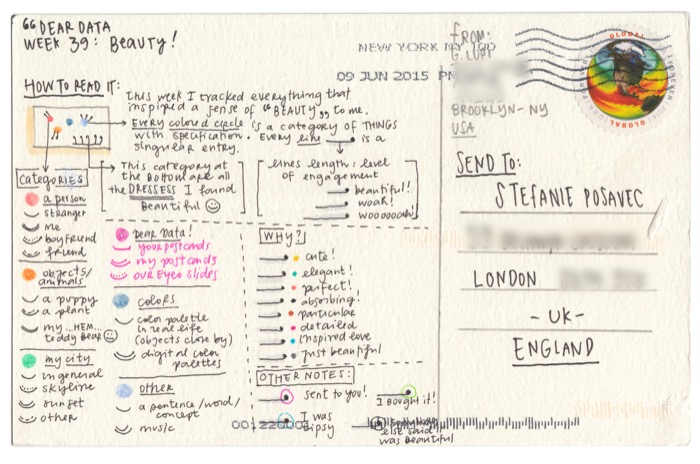 "DEAR DATA
WEEK 39: Beauty!
NEW YORK NY 100
09 JUN 2015 PM
FROM:
G. LUPI
BROOKLYN-NY
USA
GLOBAL
FOREVER
GLOBAL
HOW TO READ IT:
This week I tracked everything that
inspired a sense of "BEAUTY" to me.
Every colored circle is a category of THINGS
with specification. Every line is a
singular entry.
This category at
the BOTTOM are all
the DRESSESS I found
Beautiful
lines length: level
of engagement
beautiful!
woah!
wooooooah!
Categories
a person
stranger
me
boyfriend
friend
objects/
animals
a puppy
a plant
my...HEM...
teddy Bear
my city
in general
skyline
sunset
other
Dear Data!
your postcards
my postcards
our Eyeo slides
COLORS
color palette
in real life
(objects close by)
digital color
palettes
other
a sentence/word/
concept
music
WHY?
cute!
elegant!
perfect!
absorbing!
particular
detailed
inspired love
just beautiful
OTHER NOTES:
sent to you!
I Bought it!
I was
tipsy
somebody
else said it
was Beautiful
SEND TO:
STEFANIE POSAVEC
LONDON
- UK -
ENGLAND